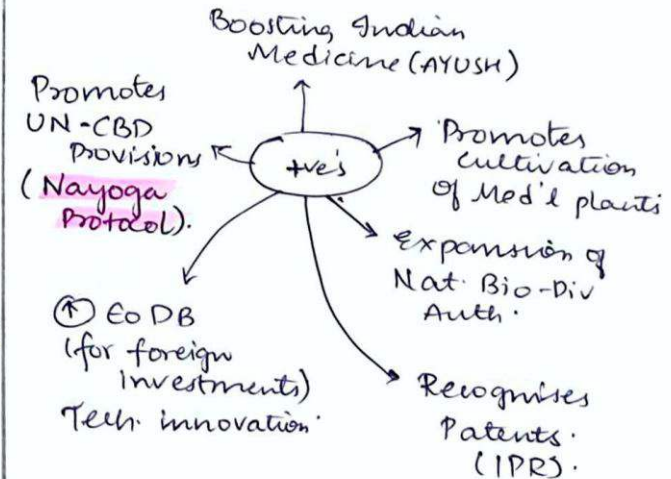 Boosting Indian
Medicine (AYUSH)
Promotes
UN-CBD
Provisions
(Nayoga
Protocol).
+ve's
Promotes
cultivation
of Med'l plants
Expansion of
Nat. Bio-Div
Auth.
↑ EoDB
(for foreign
investments)
Tech. innovation.
Recognises
Patents.
(IPR).